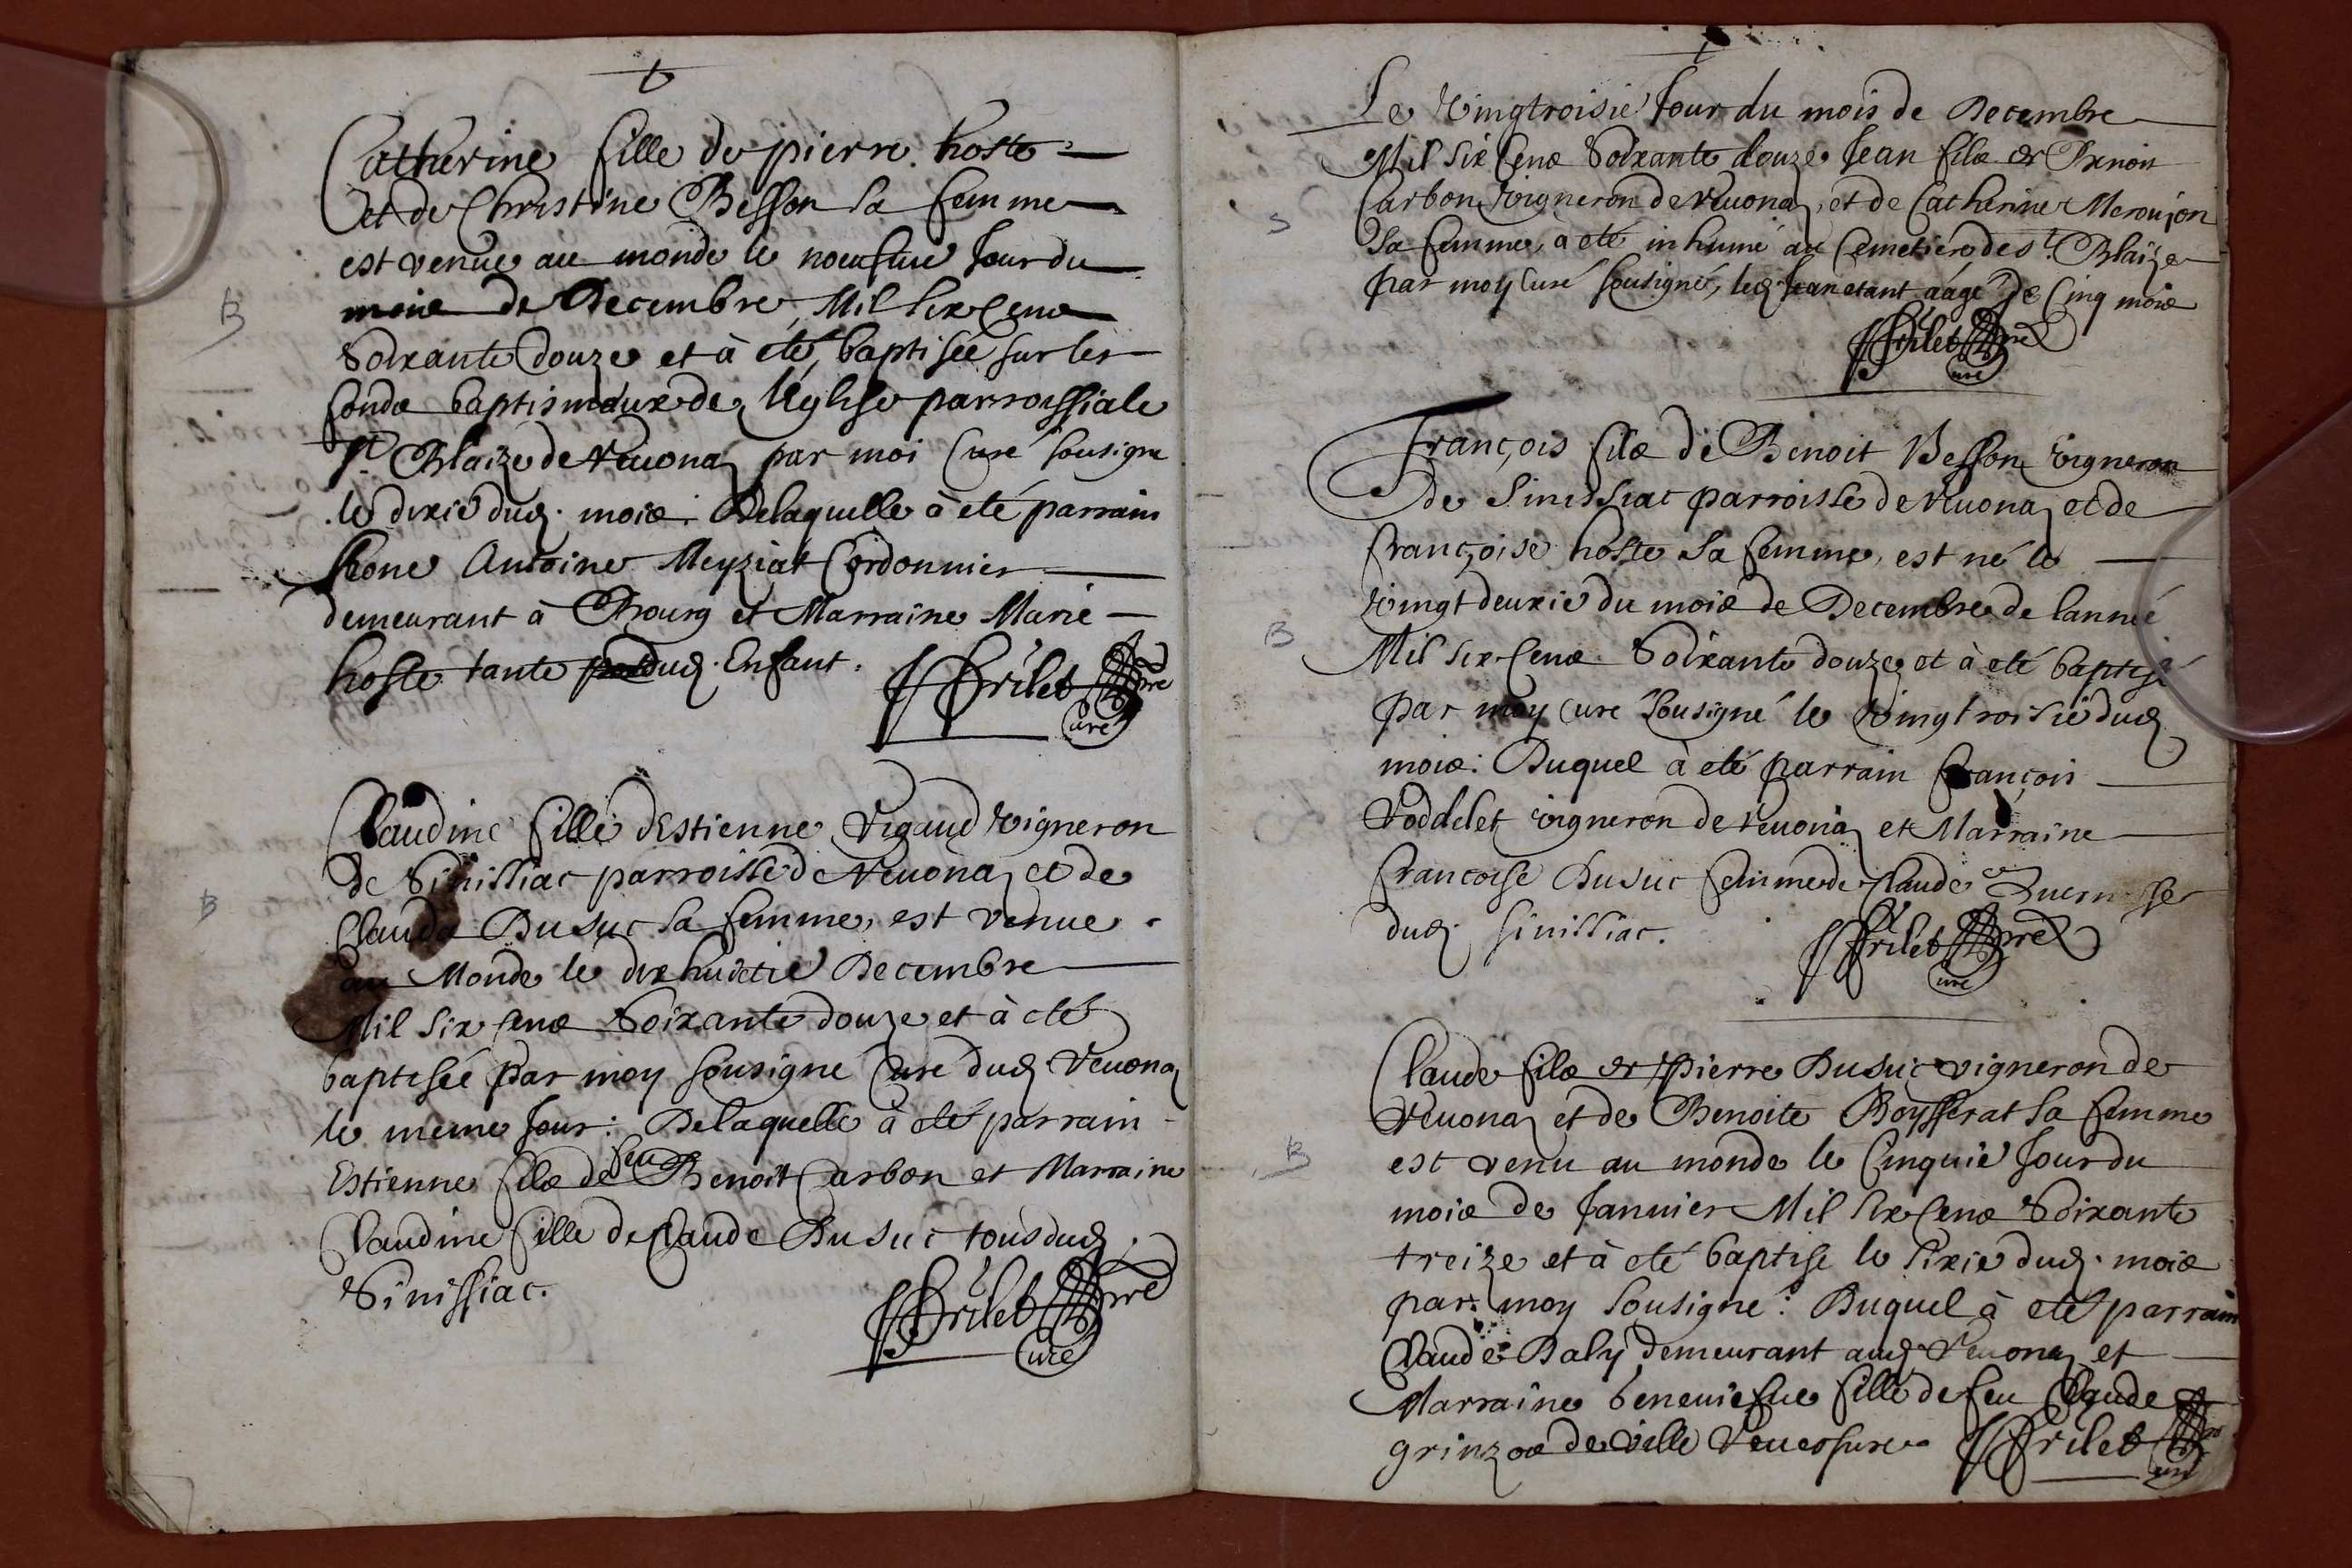 Catherine fille de pierre. hoste
et de Christine Besson sa femme
est venue au monde le neufuie Jour du
B
mois de Decembre, Mil six Cens
Soixante douze et à eté baptisée sur les
fonds baptismaux de l'église parroissiale
St Blaize de Veuona par moi Curé sousigné
le dixie dud. mois. Delaquelle à eté parrain
hone Antoine Meyziat Cordonnier
demeurant à Bourg et Marraine Marie
hoste tante dud. Enfant.
Frilet pre
Curé
Claudine fille d'Estienne Vigaud vigneron
de Sinissiac parroisse de Veuona et de
B
Claude Dusuc sa femme, est venue
au Monde le dixhuictie Decembre
Mil Six Cens Soixante douze et à eté
baptisée par moy sousigné Curé dud Veuona
le meme Jour: Delaquelle à eté parrain
Estienne fils de feu Benoit Carbon et Marraine
Claudine fille de Claude Dusuc tous dud.
Sinissiac.
Frilet pre
Curé
Le Vingtroisie Jour du mois de Decembre
Mil Six Cens Soixante douze Jean fils de
Carbon vigneron de Veuona, et de Catherine Meroujon
S
Sa femme, à eté inhumé au Cemetiere de St. Blaize
par moy Curé sousigné, led. Jean etant aagé De Cinq mois
Frilet pre
curé
François fils de Benoit Besson vigneron
de Sinissiac parroisse de Veuona et de
françoise hoste sa femme, est né le
Vingtdeuxie du mois de Decembre de lanneé
B
Mil six Cens Soixante douze et à eté baptisé
par moy Curé sousigné le vingtroisie dud
mois: Duquel à eté parrain françois
Voddelet vigneron de Veuona et Marraine
francoise Dusuc femme de Claude
dud. Sinissiac.
Frilet pre
curé
Claude fils de Pierre Dusuc vigneron de
Veuona et de Benoite Boysserat sa femme
B
est venu au monde le Cinquie Jour du
mois de Januier Mil six Cens Soixante
treize et à eté baptisé le sixie dud. mois
par moy sousigné: Duquel à eté parrain
Claude Baly demeurant aud Veuona et
Marraine beneuiefue fille de feu Claude
grinzoe de ville Veuersure
Frilet
curé